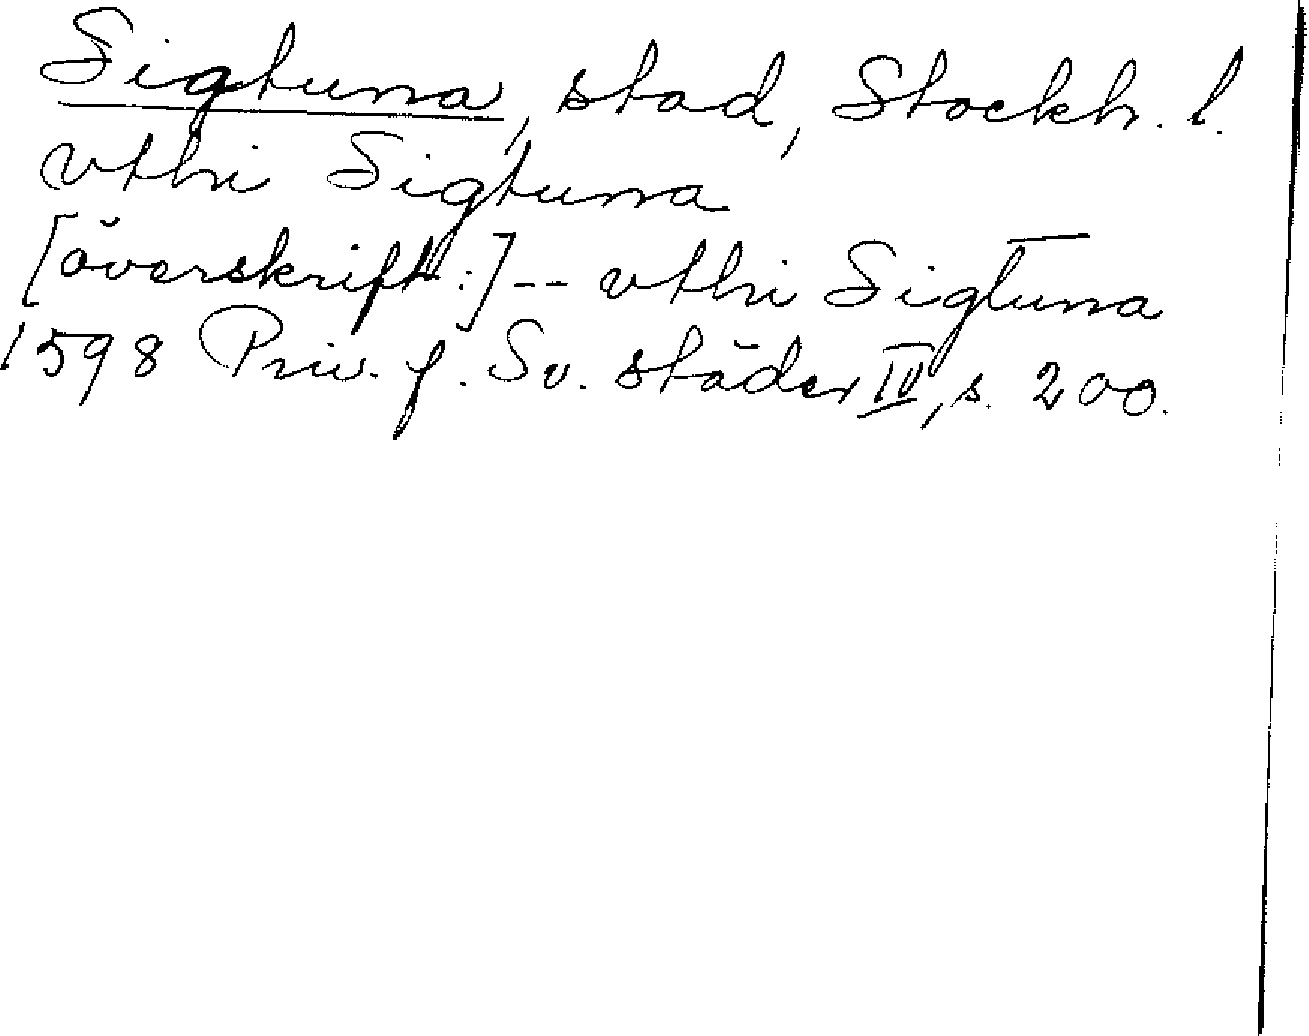 Sigtuna, stad, Stockh. l.
vthi Sigtuna
[överskrift:] -- vthi Sigtuna
1598 Priv. f. Sv. städer IV, s. 200.